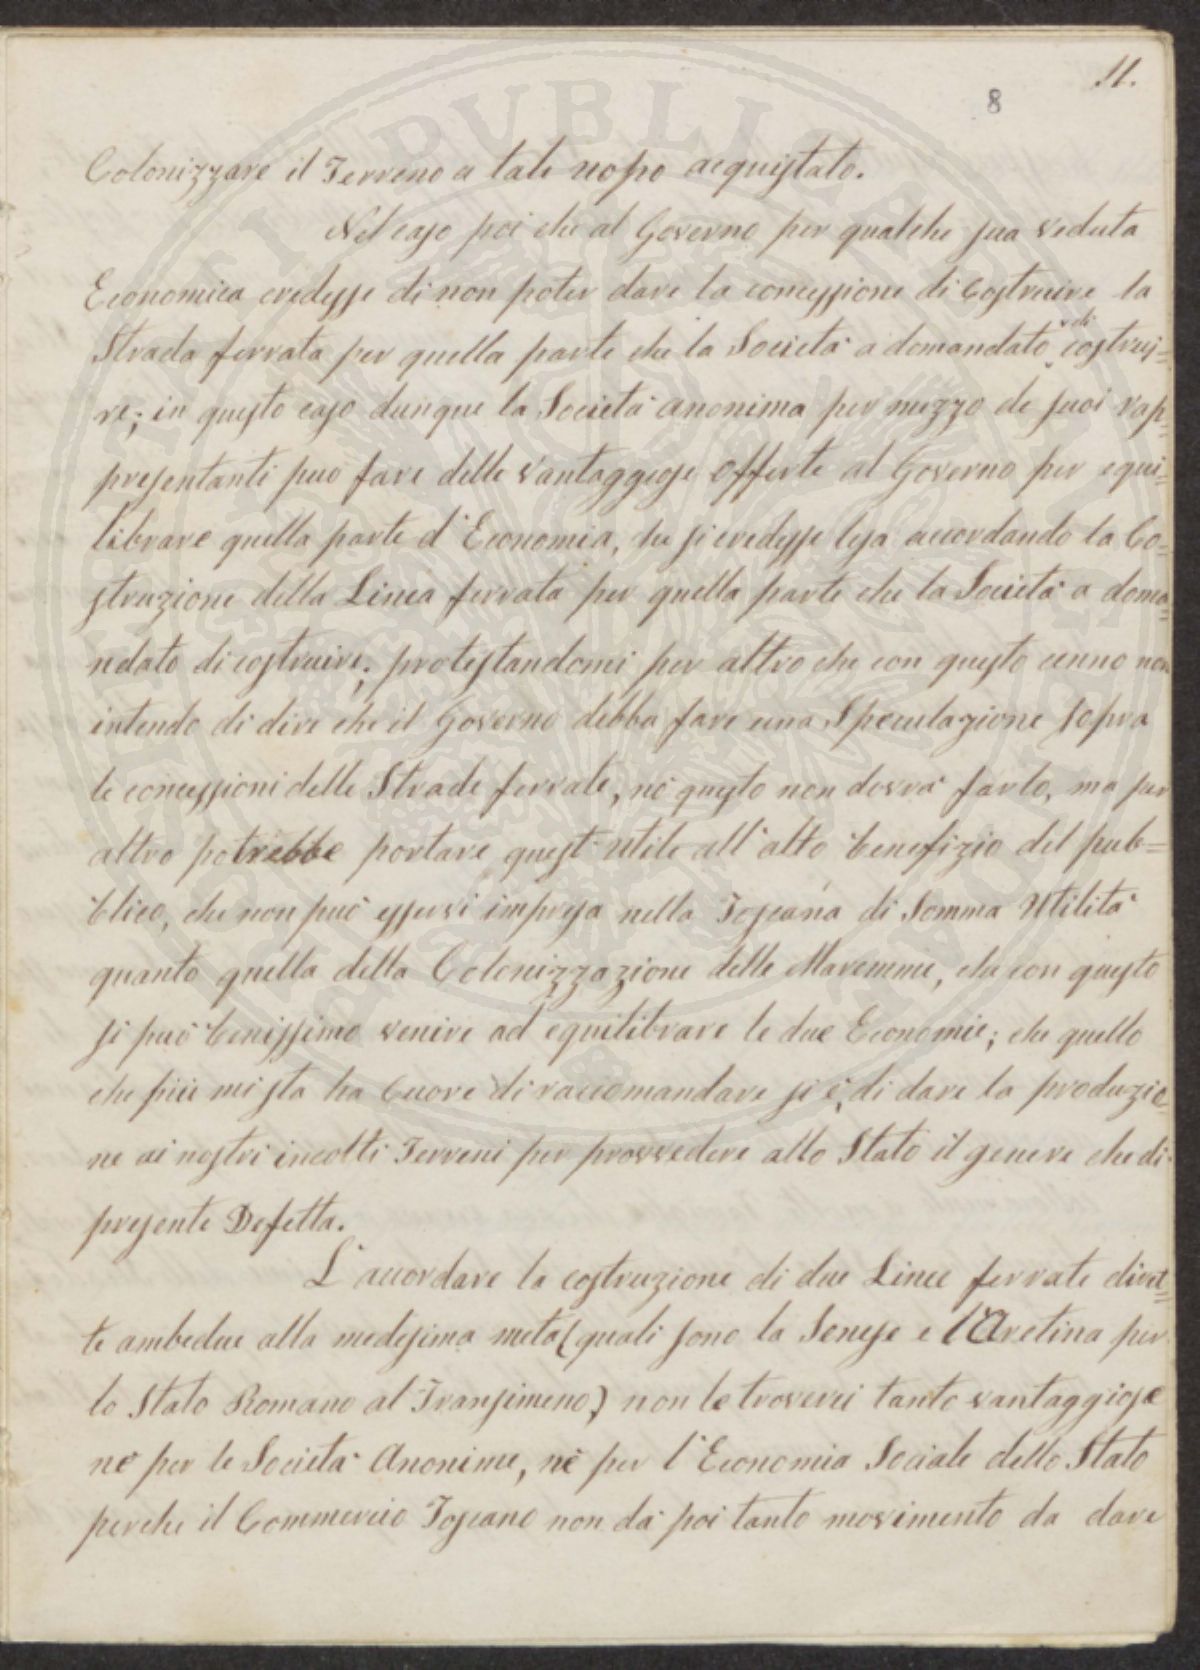 11.
8
Colonizzare il Terreno a tale uopo acquistato.
Nel caso poi che al Governo per qualche sua veduta
Economica credesse di non poter dare la concessione di Costruire la
Strada ferrata per quella parte che la Società a domandato di costrui=
re; in questo caso dunque la Società anonima per mezzo de suoi rap=
presentanti puo fare delle vantaggiose offerte al Governo per equi=
librare quella parte d'Economia, che si credesse lesa accordando la Co=
struzione della Linea ferrata per quella parte che la Società a doma=
ndato di costruire; protestandomi per altro che con questo cenno non
intendo di dire che il Governo debba fare una Speculazione sopra
le concessioni delle Strade ferrate, nò questo non dovrà farlo, ma per
altro potrebbe portare quest'utile all'alto benefizio del pub=
blico, che non può esservi impresa nella Toscana di Somma Utilità
quanto quella della Colonizzazione delle Maremme, che con questo
si può benissimo venire ad equilibrare le due Economie; che quello
che più mi sta ha Cuore di raccomandare si è, di dare la produzio=
ne ai nostri incolti Terreni per provvedere allo Stato il genere che di
presente Defetta.
L'accordare la costruzione di due Linee ferrate diret=
te ambedue alla medesima meta (quali sono la Senese e l'Aretina per
lo Stato Romano al Transimeno) non le troverei tanto vantaggiose
nè per le Società Anonime, nè per l'Economia Sociale dello Stato
perche il Commercio Toscano non dà poi tanto movimento da dare